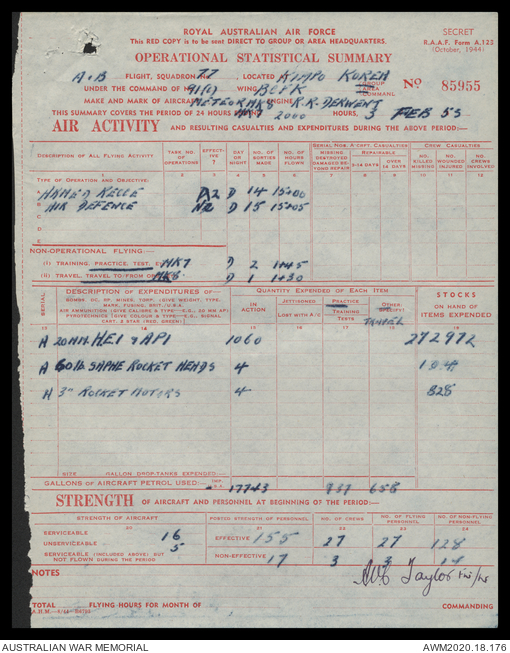 ROYAL AUSTRALIAN AIR FORCE
SECRET
This RED COPY is to be sent DIRECT TO GROUP OR AREA HEADQUARTERS.
R.A.A.F. Form A.123
(October, 1944)
OPERATIONAL STATISTICAL SUMMARY
A+B FLIGHT, SQUADRON 77 LOCATED KIMPO KOREA
UNDER THE COMMAND OF 91(C) WING BCFK GROUP AREA COMMAND No 85955
MAKE AND MARK OF AIRCRAFT METEOR MK8 ENGINE R.R. DERWENT
THIS SUMMARY COVERS THE PERIOD OF 24 HOURS 2000 HOURS, 3 FEB 53
AIR ACTIVITY AND RESULTING CASUALTIES AND EXPENDITURES DURING THE ABOVE PERIOD:—
DESCRIPTION OF ALL FLYING ACTIVITY
TASK NO. OF OPERATIONS
EFFECTIVE
DAY OR NIGHT
NO. OF SORTIES MADE
NO. OF HOURS FLOWN
SERIAL NOS. A/CRAFT. CASUALTIES
MISSING DESTROYED DAMAGED BEYOND REPAIR
REPAIRABLE
OVER 14 DAYS
CREW CASUALTIES
NO. KILLED MISSING
NO. WOUNDED INJURED
NO. INVOLVED
TYPE OF OPERATION AND OBJECTIVE:
2 D 14 15+00
AIR DEFENCE D 15 15+05
NON-OPERATIONAL FLYING—
(I) TRAINING. PRACTICE. TEST. MK7 D 2 1+45
(II) TRAVEL. TRAVEL TO/FROM OPS MK8 D 1 1+30
SERIAL
DESCRIPTION OF EXPENDITURES OF—
QUANTITY EXPENDED OF EACH ITEM
STOCKS
ON HAND OF ITEMS EXPENDED
IN ACTION
JETTISONED
LOST WITH A/C
PRACTICE
TRAINING
TESTS
OTHER
TRAVEL
A 20MM HEI & API 1060 272972
A 60LB SAPHE ROCKET HEADS 4
A 3" ROCKET MOTORS 4 828
SIZE GALLON DROP-TANKS EXPENDED—
GALLONS OF AIRCRAFT PETROL USED:— 17743 937 658
STRENGTH OF AIRCRAFT AND PERSONNEL AT BEGINNING OF THE PERIOD:—
STRENGTH OF AIRCRAFT
POSTED STRENGTH OF PERSONNEL
NO. OF CREWS
NO. OF FLYING PERSONNEL
NO. OF NON-FLYING PERSONNEL
SERVICEABLE 16
UNSERVICEABLE 5
SERVICEABLE (INCLUDED ABOVE) BUT NOT FLOWN DURING THE PERIOD
EFFECTIVE 155 27 27 128
NON-EFFECTIVE 17 3 3 14
NOTES
Taylor
TOTAL FLYING HOURS FOR MONTH OF
COMMANDING
AUSTRALIAN WAR MEMORIAL
AWM2020.18.176